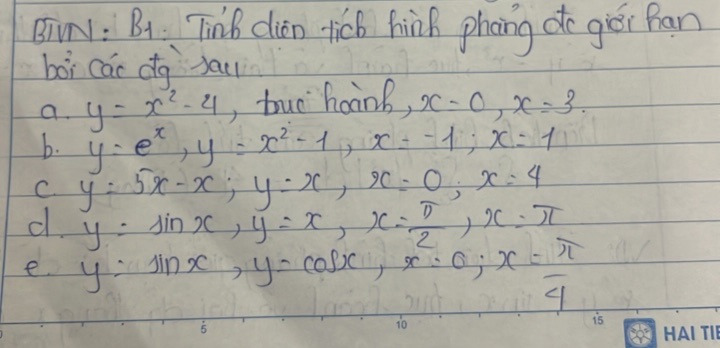 BTVN: B1: Tính diện tích hình phẳng đc giới hạn
bởi các đtg sau
a. y = x² - 4, trục hoành, x = 0, x = 3.
b. y = eˣ, y = x² - 1, x = -1; x = 1
c. y = 5x - x; y = x, x = 0; x = 4
d. y = sin x, y = x, x = π/2, x = π
e. y = sin x, y = cosx, x = 0; x = π/4
5 10 15 HAI TIẾ